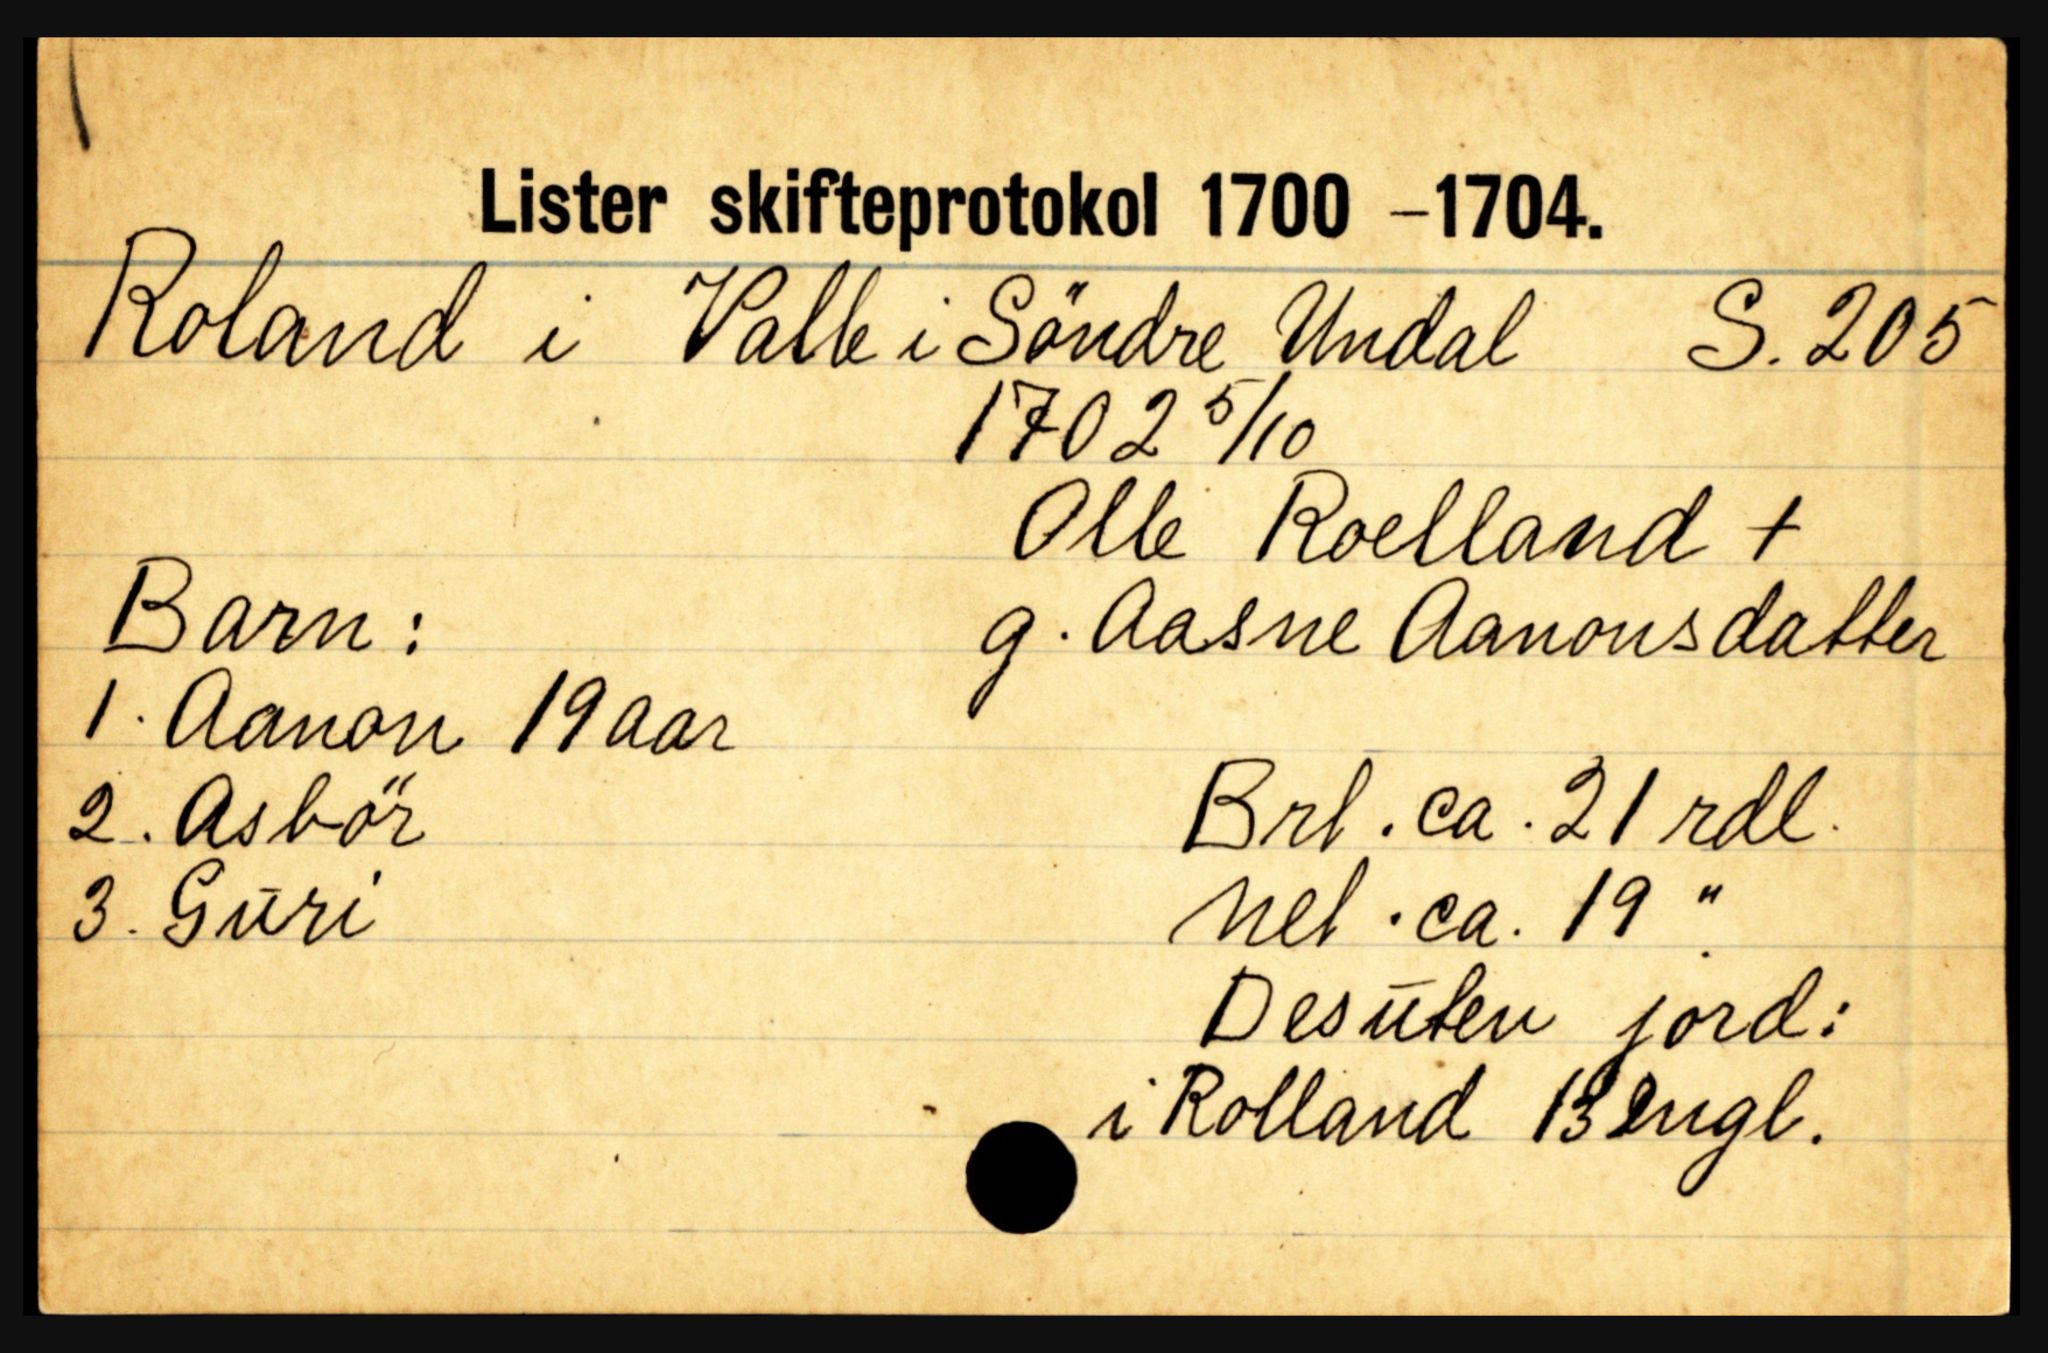 Lister skifteprotokol 1700 – 1704.
Roland i Valle i Söndre Undal S. 205
1702 5/10
Olle Roelland +
Barn:
g. Aasne Aanonsdatter
1. Aanon 19 aar
2. Asbör
Brt. ca. 21 rdl.
3. Guri
Net. ca. 19 "
Desuten jord:
i Rolland 13 engl.